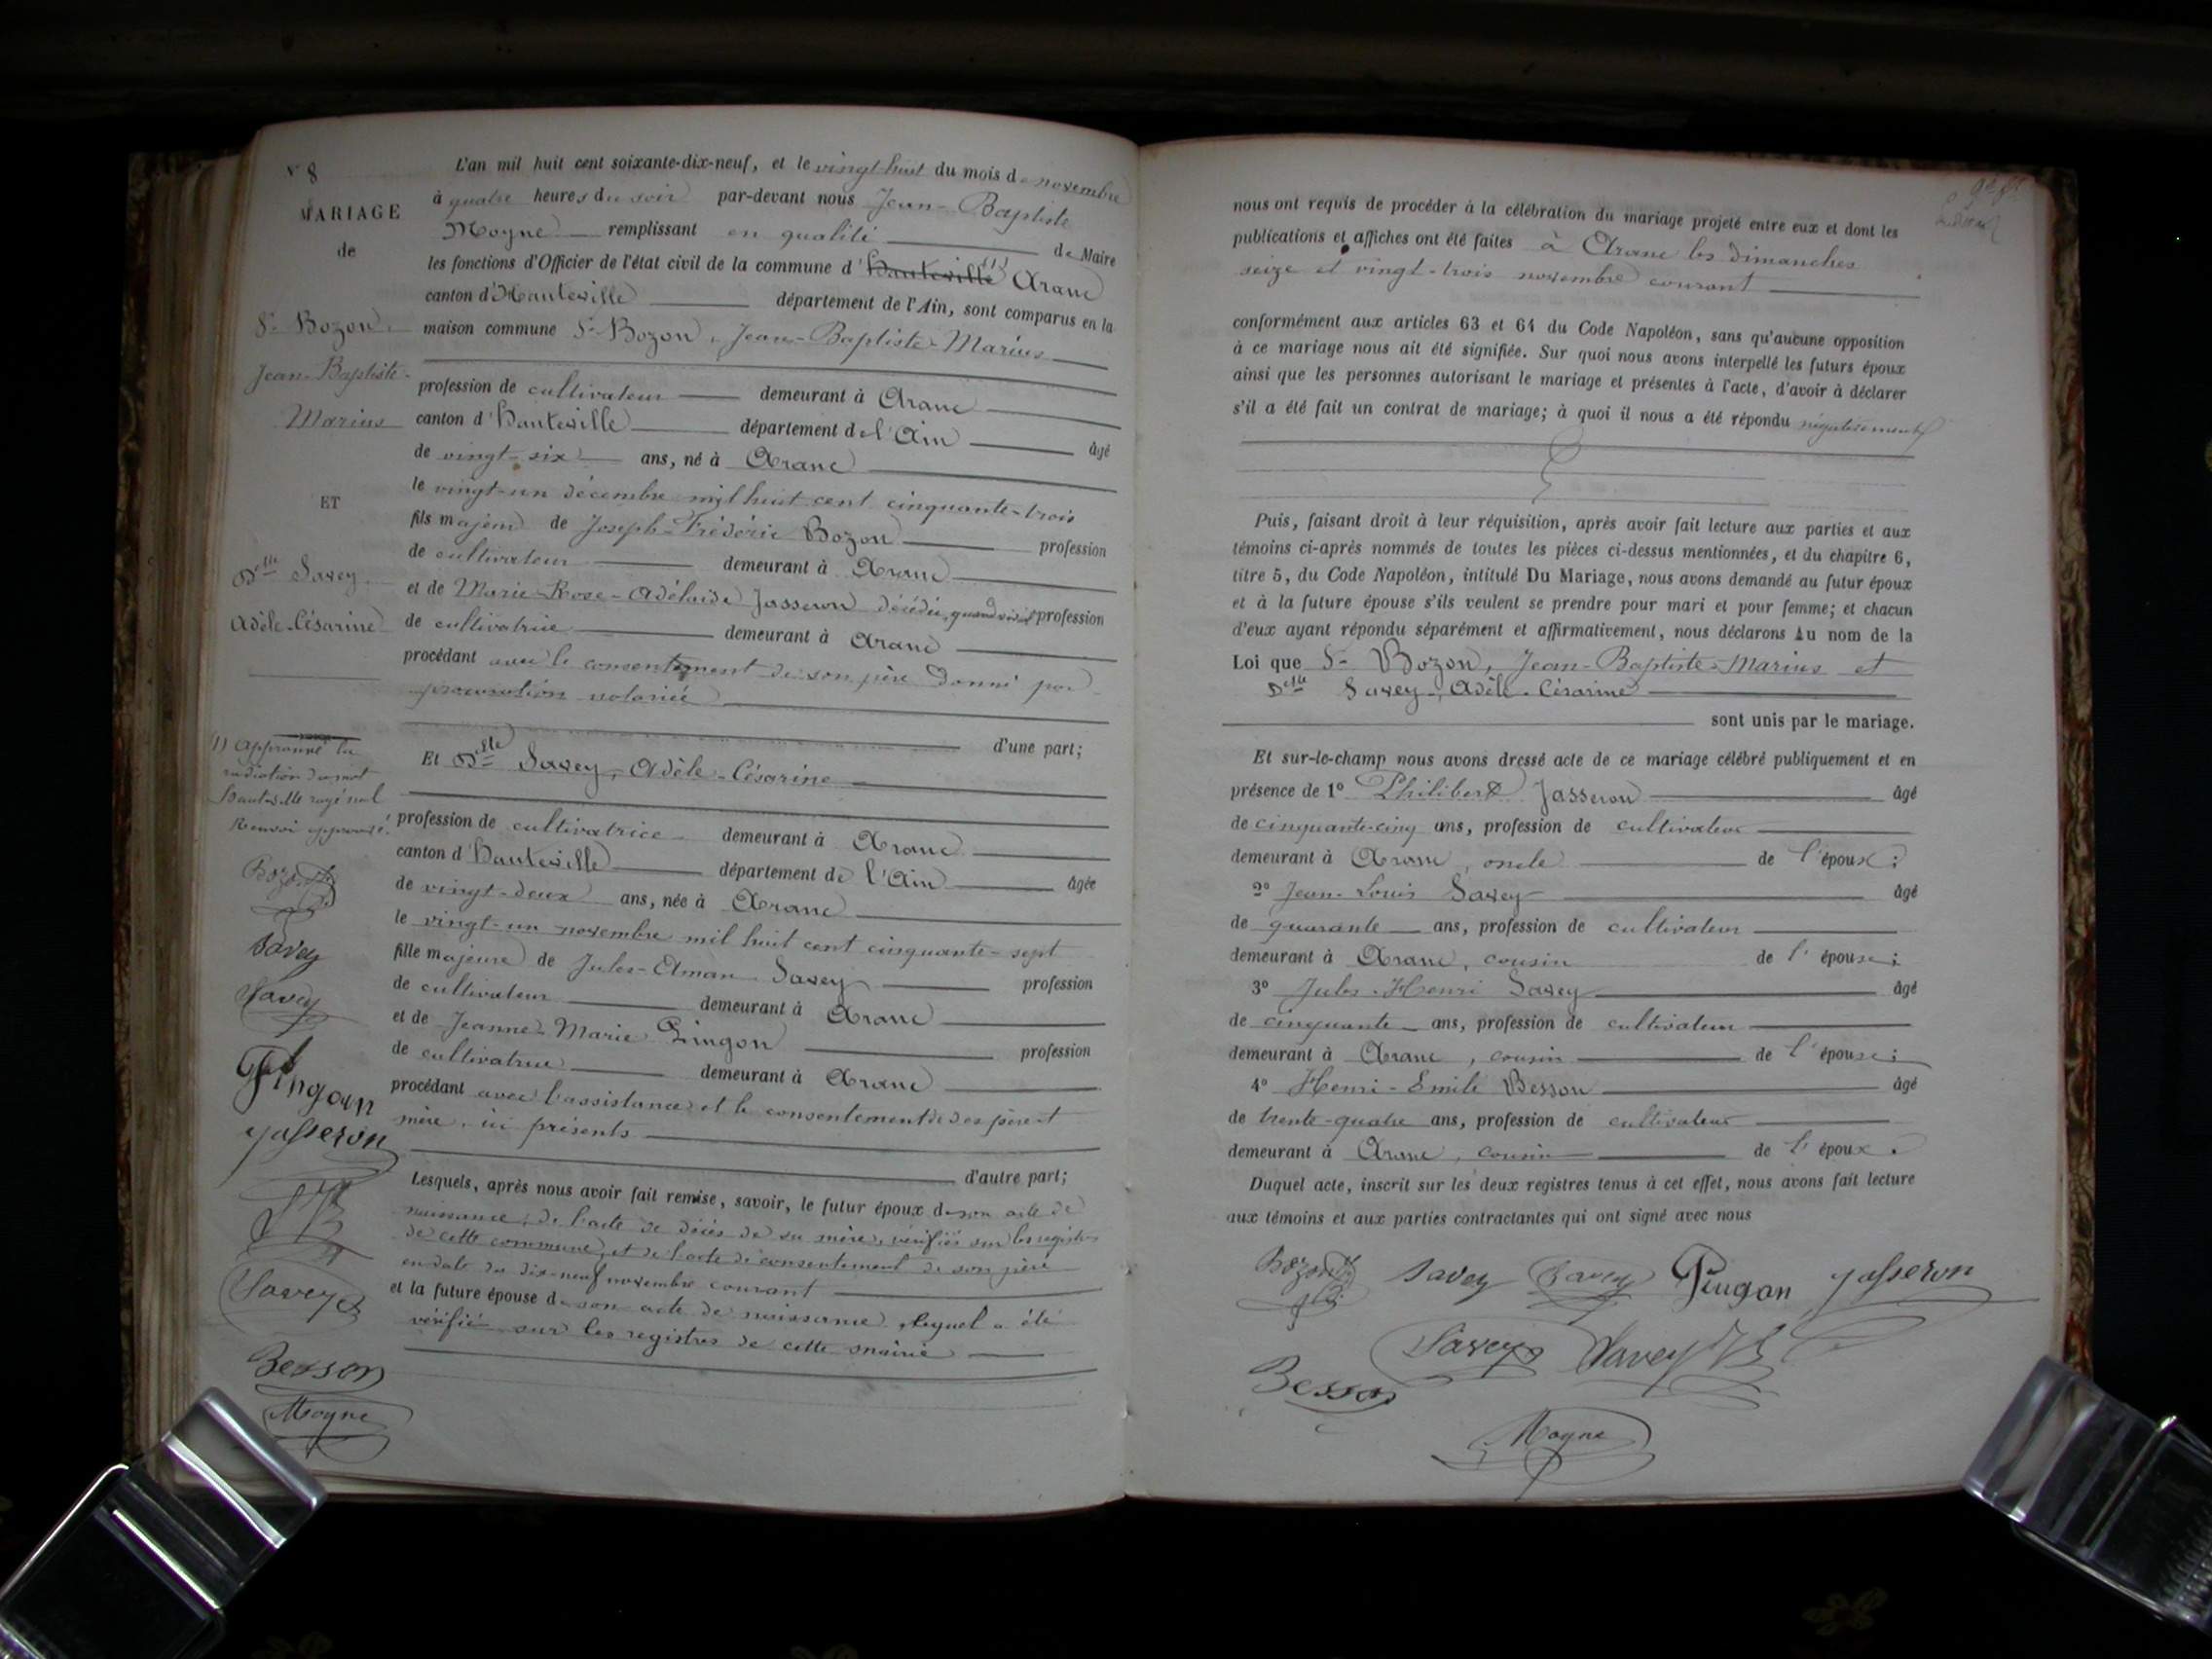 N° 8
MARIAGE
de
Sr Bozon,
Jean-Baptiste-
Marius
ET
Delle Savey
Adèle-Césarine
(1) Approuvé la
radiation du mot
Hauteville rayé nul
Renvoi approuvé.
Bozon
Savey
Savey
Pingon
Jasseron
Savey
Besson
Moyne
L'an mil huit cent soixante-dix-neuf, et le vingt-huit du mois de novembre
à quatre heures du soir par-devant nous Jean-Baptiste
Moyne remplissant en qualité de Maire
les fonctions d'Officier de l'état civil de la commune d'Hauteville (1) Aranc
canton d'Hauteville département de l'Ain, sont comparus en la
maison commune Sr Bozon, Jean-Baptiste-Marius
profession de cultivateur demeurant à Aranc
canton d'Hauteville département de l'Ain âgé
de vingt-six ans, né à Aranc
le vingt-un décembre mil huit cent cinquante-trois
fils majeur de Joseph-Frédéric Bozon profession
de cultivateur demeurant à Aranc
et de Marie-Rose-Adélaïde Jasseron décédée, quand vivait profession
de cultivatrice demeurant à Aranc
procédant avec le consentement de son père donné par
procuration notariée
d'une part;
Et Delle Savey, Adèle-Césarine
profession de cultivatrice demeurant à Aranc
canton d'Hauteville département de l'Ain âgée
de vingt-deux ans, née à Aranc
le vingt-un novembre mil huit cent cinquante-sept
fille majeure de Jules-Aman Savey profession
de cultivateur demeurant à Aranc
et de Jeanne-Marie Pingon profession
de cultivatrice demeurant à Aranc
procédant avec l'assistance et le consentement de ses père et
mère, ici présents
d'autre part;
Lesquels, après nous avoir fait remise, savoir, le futur époux de son acte de
naissance, de l'acte de décès de sa mère, vérifiés sur les registres
de cette commune, et de l'acte de consentement de son père
en date du dix-neuf novembre courant
et la future épouse de son acte de naissance, lequel a été
vérifié sur les registres de cette mairie
nous ont requis de procéder à la célébration du mariage projeté entre eux et dont les
publications et affiches ont été faites à Aranc les dimanches
seize et vingt-trois novembre courant
conformément aux articles 63 et 64 du Code Napoléon, sans qu'aucune opposition
à ce mariage nous ait été signifiée. Sur quoi nous avons interpellé les futurs époux
ainsi que les personnes autorisant le mariage et présentes à l'acte, d'avoir à déclarer
s'il a été fait un contrat de mariage; à quoi il nous a été répondu négativement
Puis, faisant droit à leur réquisition, après avoir fait lecture aux parties et aux
témoins ci-après nommés de toutes les pièces ci-dessus mentionnées, et du chapitre 6,
titre 5, du Code Napoléon, intitulé Du Mariage, nous avons demandé au futur époux
et à la future épouse s'ils veulent se prendre pour mari et pour femme; et chacun
d'eux ayant répondu séparément et affirmativement, nous déclarons Au nom de la
Loi que Sr Bozon, Jean-Baptiste-Marius et
Delle Savey, Adèle-Césarine
sont unis par le mariage.
Et sur-le-champ nous avons dressé acte de ce mariage célébré publiquement et en
présence de 1° Philibert Jasseron âgé
de cinquante-cinq ans, profession de cultivateur
demeurant à Aranc, oncle de l'époux;
2° Jean-Louis Savey âgé
de quarante ans, profession de cultivateur
demeurant à Aranc, cousin de l'épouse;
3° Jules-Henri Savey âgé
de cinquante ans, profession de cultivateur
demeurant à Aranc, cousin de l'épouse;
4° Henri-Emile Besson âgé
de trente-quatre ans, profession de cultivateur
demeurant à Aranc, cousin de l'époux.
Duquel acte, inscrit sur les deux registres tenus à cet effet, nous avons fait lecture
aux témoins et aux parties contractantes qui ont signé avec nous
Bozon Savey Savey Pingon Jasseron
Savey Savey
Besson
Moyne